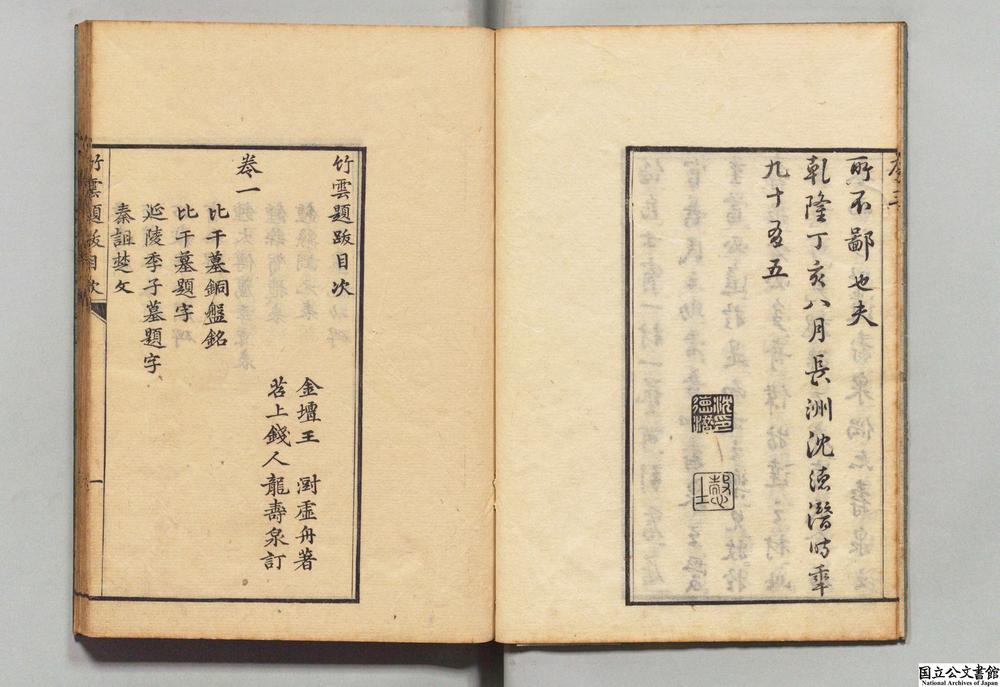 所不鄙也夫
乾隆丁亥八月長洲沈德潛時年
九十有五
沈德潛印
慤士
竹雲題跋目次
金壇王澍虛舟著
苕上錢人龍壽泉訂
卷一
比干墓銅盤銘
比干墓題字
延陵季子墓題字
秦詛楚文
竹雲題跋目次
一
国立公文書館
National Archives of Japan